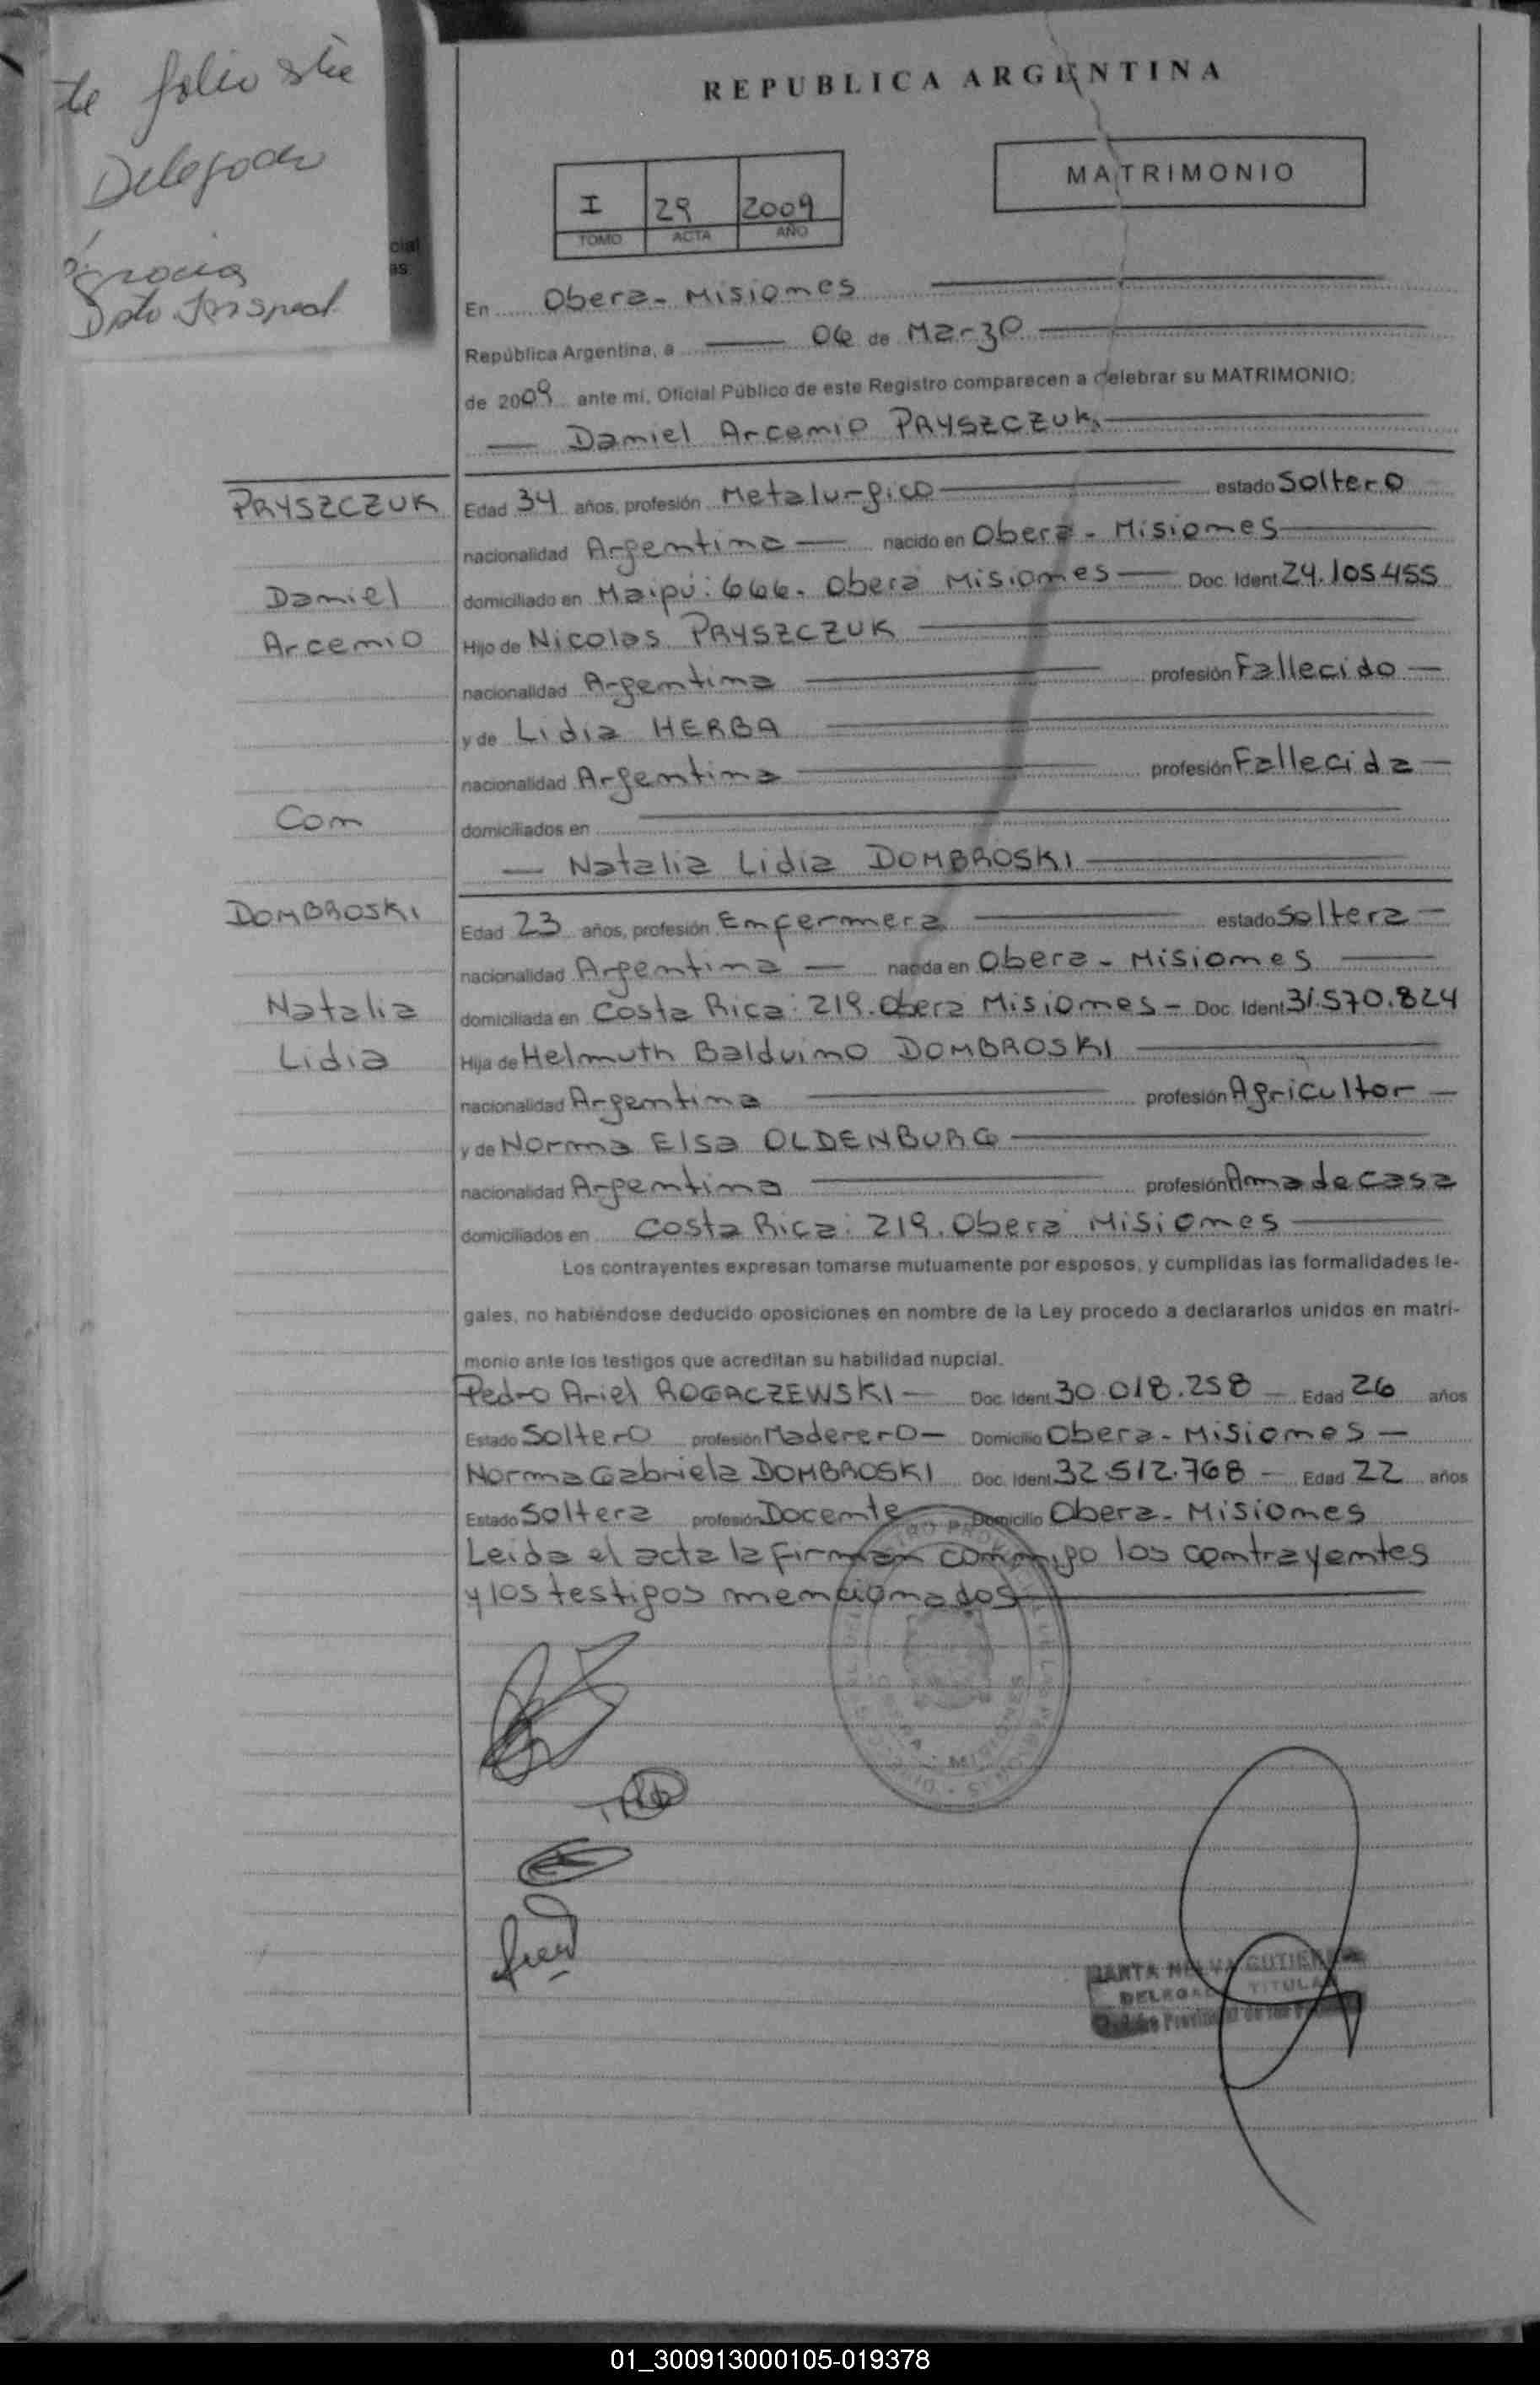 te folio
Delegada
gracias
cial
as
REPUBLICA ARGENTINA
MATRIMONIO
I 29 2009
TOMO ACTA AÑO
En Obera - Misiones
República Argentina, a 06 de Marzo
de 2009 ante mí, Oficial Público de este Registro comparecen a celebrar su MATRIMONIO:
Daniel Arcemio PRYSZCZUK
PRYSZCZUK
Edad 34 años, profesión Metalurgico estado Soltero
nacionalidad Argentina nacido en Obera - Misiones
Daniel
domiciliado en Maipú: 666. Obera Misiones Doc. Ident 24.105455
Arcemio
Hijo de Nicolas PRYSZCZUK
nacionalidad Argentina profesión Fallecido
y de Lidia HERBA
nacionalidad Argentina profesión Fallecida
Con
domiciliados en
Natalia Lidia DOMBROSKI
DOMBROSKI
Edad 23 años, profesión Enfermera estado Soltera
nacionalidad Argentina nacida en Obera - Misiones
Natalia
domiciliada en Costa Rica: 219. Obera Misiones - Doc. Ident 31.570.824
Lidia
Hija de Helmuth Balduino DOMBROSKI
nacionalidad Argentina profesión Agricultor
y de Norma Elsa OLDENBURG
nacionalidad Argentina profesión Ama de casa
domiciliados en Costa Rica: 219. Obera Misiones
Los contrayentes expresan tomarse mutuamente por esposos, y cumplidas las formalidades le-
gales, no habiéndose deducido oposiciones en nombre de la Ley procedo a declararlos unidos en matri-
monio ante los testigos que acreditan su habilidad nupcial.
Pedro Ariel ROGACZEWSKI Doc. Ident 30.018.258 Edad 26 años
Estado Soltero profesión Maderero Domicilio Obera - Misiones
Norma Gabriela DOMBROSKI Doc. Ident 32.512.768 Edad 22 años
Estado Soltera profesión Docente Domicilio Obera - Misiones
Leida el acta la firman conmigo los contrayentes
y los testigos mencionados
OBERA - MISIONES
01_300913000105-019378